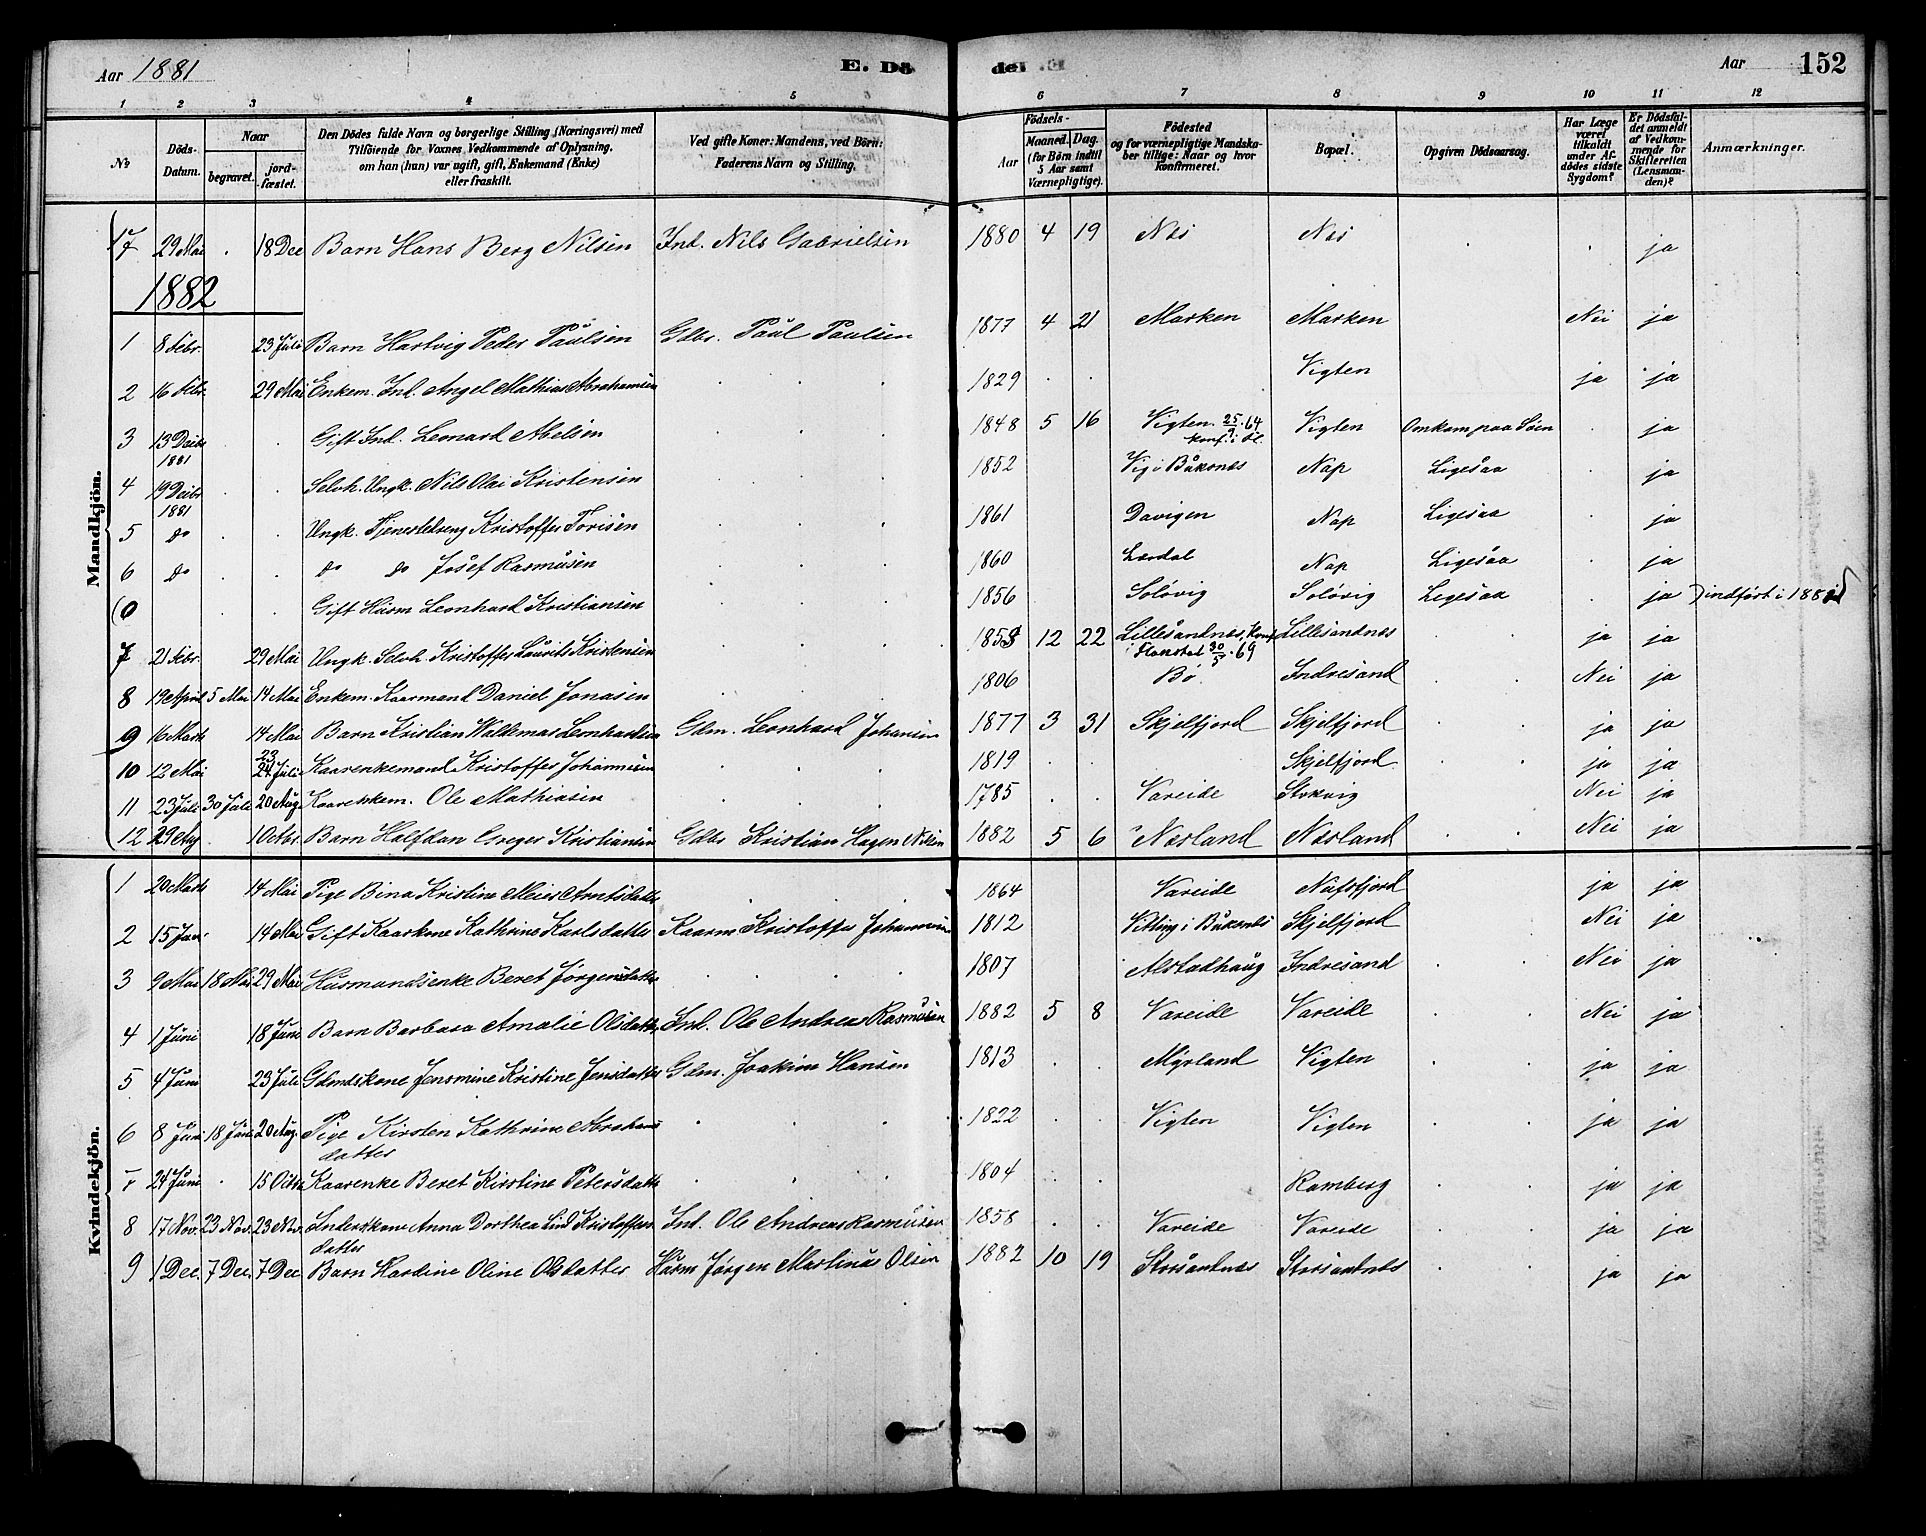 Aar 1881 E. Dö
de E. Aar 152
1 2 3 4 5 6 7 8 9 10 11 12
No
Döds-Datum.
Naar
begravet.
jord-fæstet.
Den Dödes fulde Navn og borgerlige Stilling (Næringsvei) med
Tilföiende for Voxnes Vedkommende af Oplysning,
om han (hun) var ugift, gift, Enkemand (Enke)
eller fraskilt.
Ved gifte Koner: Mandens, ved Börn:
Faderens Navn og Stilling.
Födsels-
Aar
Maaned. Dag.
(for Börn indtil
5 Aar samt
Værnepligtige).
Födested
og for værnepligtige Mandska-
ber tillige: Naar og hvor
konfirmeret.
Bopæl.
Opgiven Dödsaarsag.
Har Læge
været
tilkaldt
under Af-
dödes sidste
Sygdom?
Er Dödsfal-
det anmeldt
af Vedkom-
mende for
Skifteretten
(Lensman-
den)?
Anmærkninger.
Mandkjön.
17 29 Mai . 18 Dec Barn Hans Berg Nilsen Ind. Nils Gabrielsen 1880 4 19 Nes Nes . . ja
1882
1 8 Febr. 23 Juli Barn Hartvig Peder Paulsen Gdbr. Paul Paulsen 1877 4 21 Marken Marken Nei ja
2 16 Febr. 29 Mai Enkem. Ind. Angel Mathias Abrahamsen 1829 . . Vigten ja ja
3 13 Decbr 1881 . . Gift Ind. Leonard Abelsen 1848 5 16 Vigten. 25/9 64 konf. i Vigten Omkom paa Søen . ja
4 19 Decbr 1881 . . Selvh. Ungk. Nils Olai Kristensen 1852 Vig i Buksnes Nap Ligesaa . ja
5 do . . Ungk. Tjenestedreng Kristoffer Torisen 1861 Davigen Nap Ligesaa . ja
6 do . . do do Josef Rasmusen 1860 Lærdal Nap Ligesaa . ja
(0 . . Gift Husm Leonhard Kristiansen 1856 Soløvig Soløvig Ligesaa . ja indført i
7 21 Febr. 29 Mai Ungk. Selvh. Kristoffer Laurits Kristensen 1853 12 22 Lillesandnes, Konf. i Flakstad 30/5 69 Lillesandnes ja ja
8 19 April 5 Mai 14 Mai Enkem. Kaarmand Daniel Jonasen 1806 Bø Indresand Nei ja
9 16 Marts 14 Mai Barn Kristian Waldemar Leonhardsen Gdm. Leonhard Johansen 1877 3 31 Skjelfjord Skjelfjord ja ja
10 12 Mai 23 24 Juli Kaarenkemand Kristoffer Johannesen 1819 . . Skjelfjord ja ja
11 23 Juli 30 Juli 20 Aug. Kaarenkem. Ole Mathiasen 1785 . . Vareide Storvig Nei ja
12 29 Aug 1 Octbr. Barn Halfdan Greger Kristiansen Gdbr Kristian Hagen Nilsen 1882 5 6 Nesland Nesland Nei ja
Kvindekjön.
1 20 Marts 14 Mai Pige Bina Kristine Meier Arntsdatter 1864 Vareide Nufsfjord ja ja
2 15 14 Mai Gift Kaarkone Kathrine Karlsdatter Kaarm Kristoffer Johannesen 1812 i Buksnes Skjelfjord Nei ja
3 9 Mai 18 Mai 29 Mai Husmandsenke Beret Jørgensdatter 1807 Alstadhaug Indresand Nei ja
4 1 Juni 18 Juni Barn Barbara Amalie Olsdatter Ind. Ole Andreas Rasmusen 1882 5 8 Vareide Vareide Nei ja
5 4 Juni 23 Juli Gdmdskone Jensmine Kristine Jensdatter Gdm. Joakim Hansen 1813 . . Myrland Vigten ja ja
6 8 Juni 18 Juni 20 Aug. Pige Kirsten Kathrine Abrahams
datter 1822 . . Vigten Vigten ja ja
7 24 Juni . 15 Octbr Kaarenke Beret Kirstine Petersdatter 1804 . . Ramberg ja ja
8 17 Nov. 23 Nov. 23 Nov. Inderstkone Anna Dorthea Lind Kristoffers
datter Ind. Ole Andreas Rasmusen 1858 . . Vareide Vareide ja ja
9 1 Dec. 7 Dec. 7 Dec Barn Hardine Oline Olsdatter Husm Jørgen Martinus Olsen 1882 10 19 Storsandnes Storsandnes ja ja